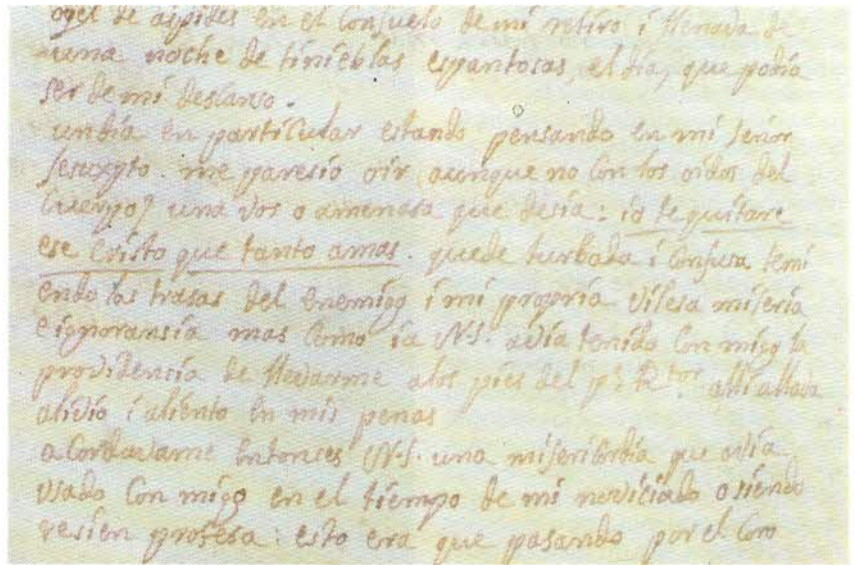 de aspides en el Consuelo de mi retiro i llenava de
una noche de tinieblas espantosas, el dia, que podia
ser de mi descanso.
un dia en particular estando pensando en mi señor
Jesuxpto. me paresio oir (aunque no con los oidos del
cuerpo) una vos o amenasa que desia: io te quitare
ese Cristo que tanto amas. quede turbada i confusa temi
endo las trasas del enemigo i mi propria vilesa miseria
e ignoransia mas como ia N.S. avia tenido con migo la
providensia de llevarme a los pies del pe. Rtor. alli allava
alivio i aliento en mis penas
acordavame entonces N.S. una misericordia que avia
usado con migo en el tiempo de mi noviciado o siendo
resien profesa: esto era que pasando por el Coro